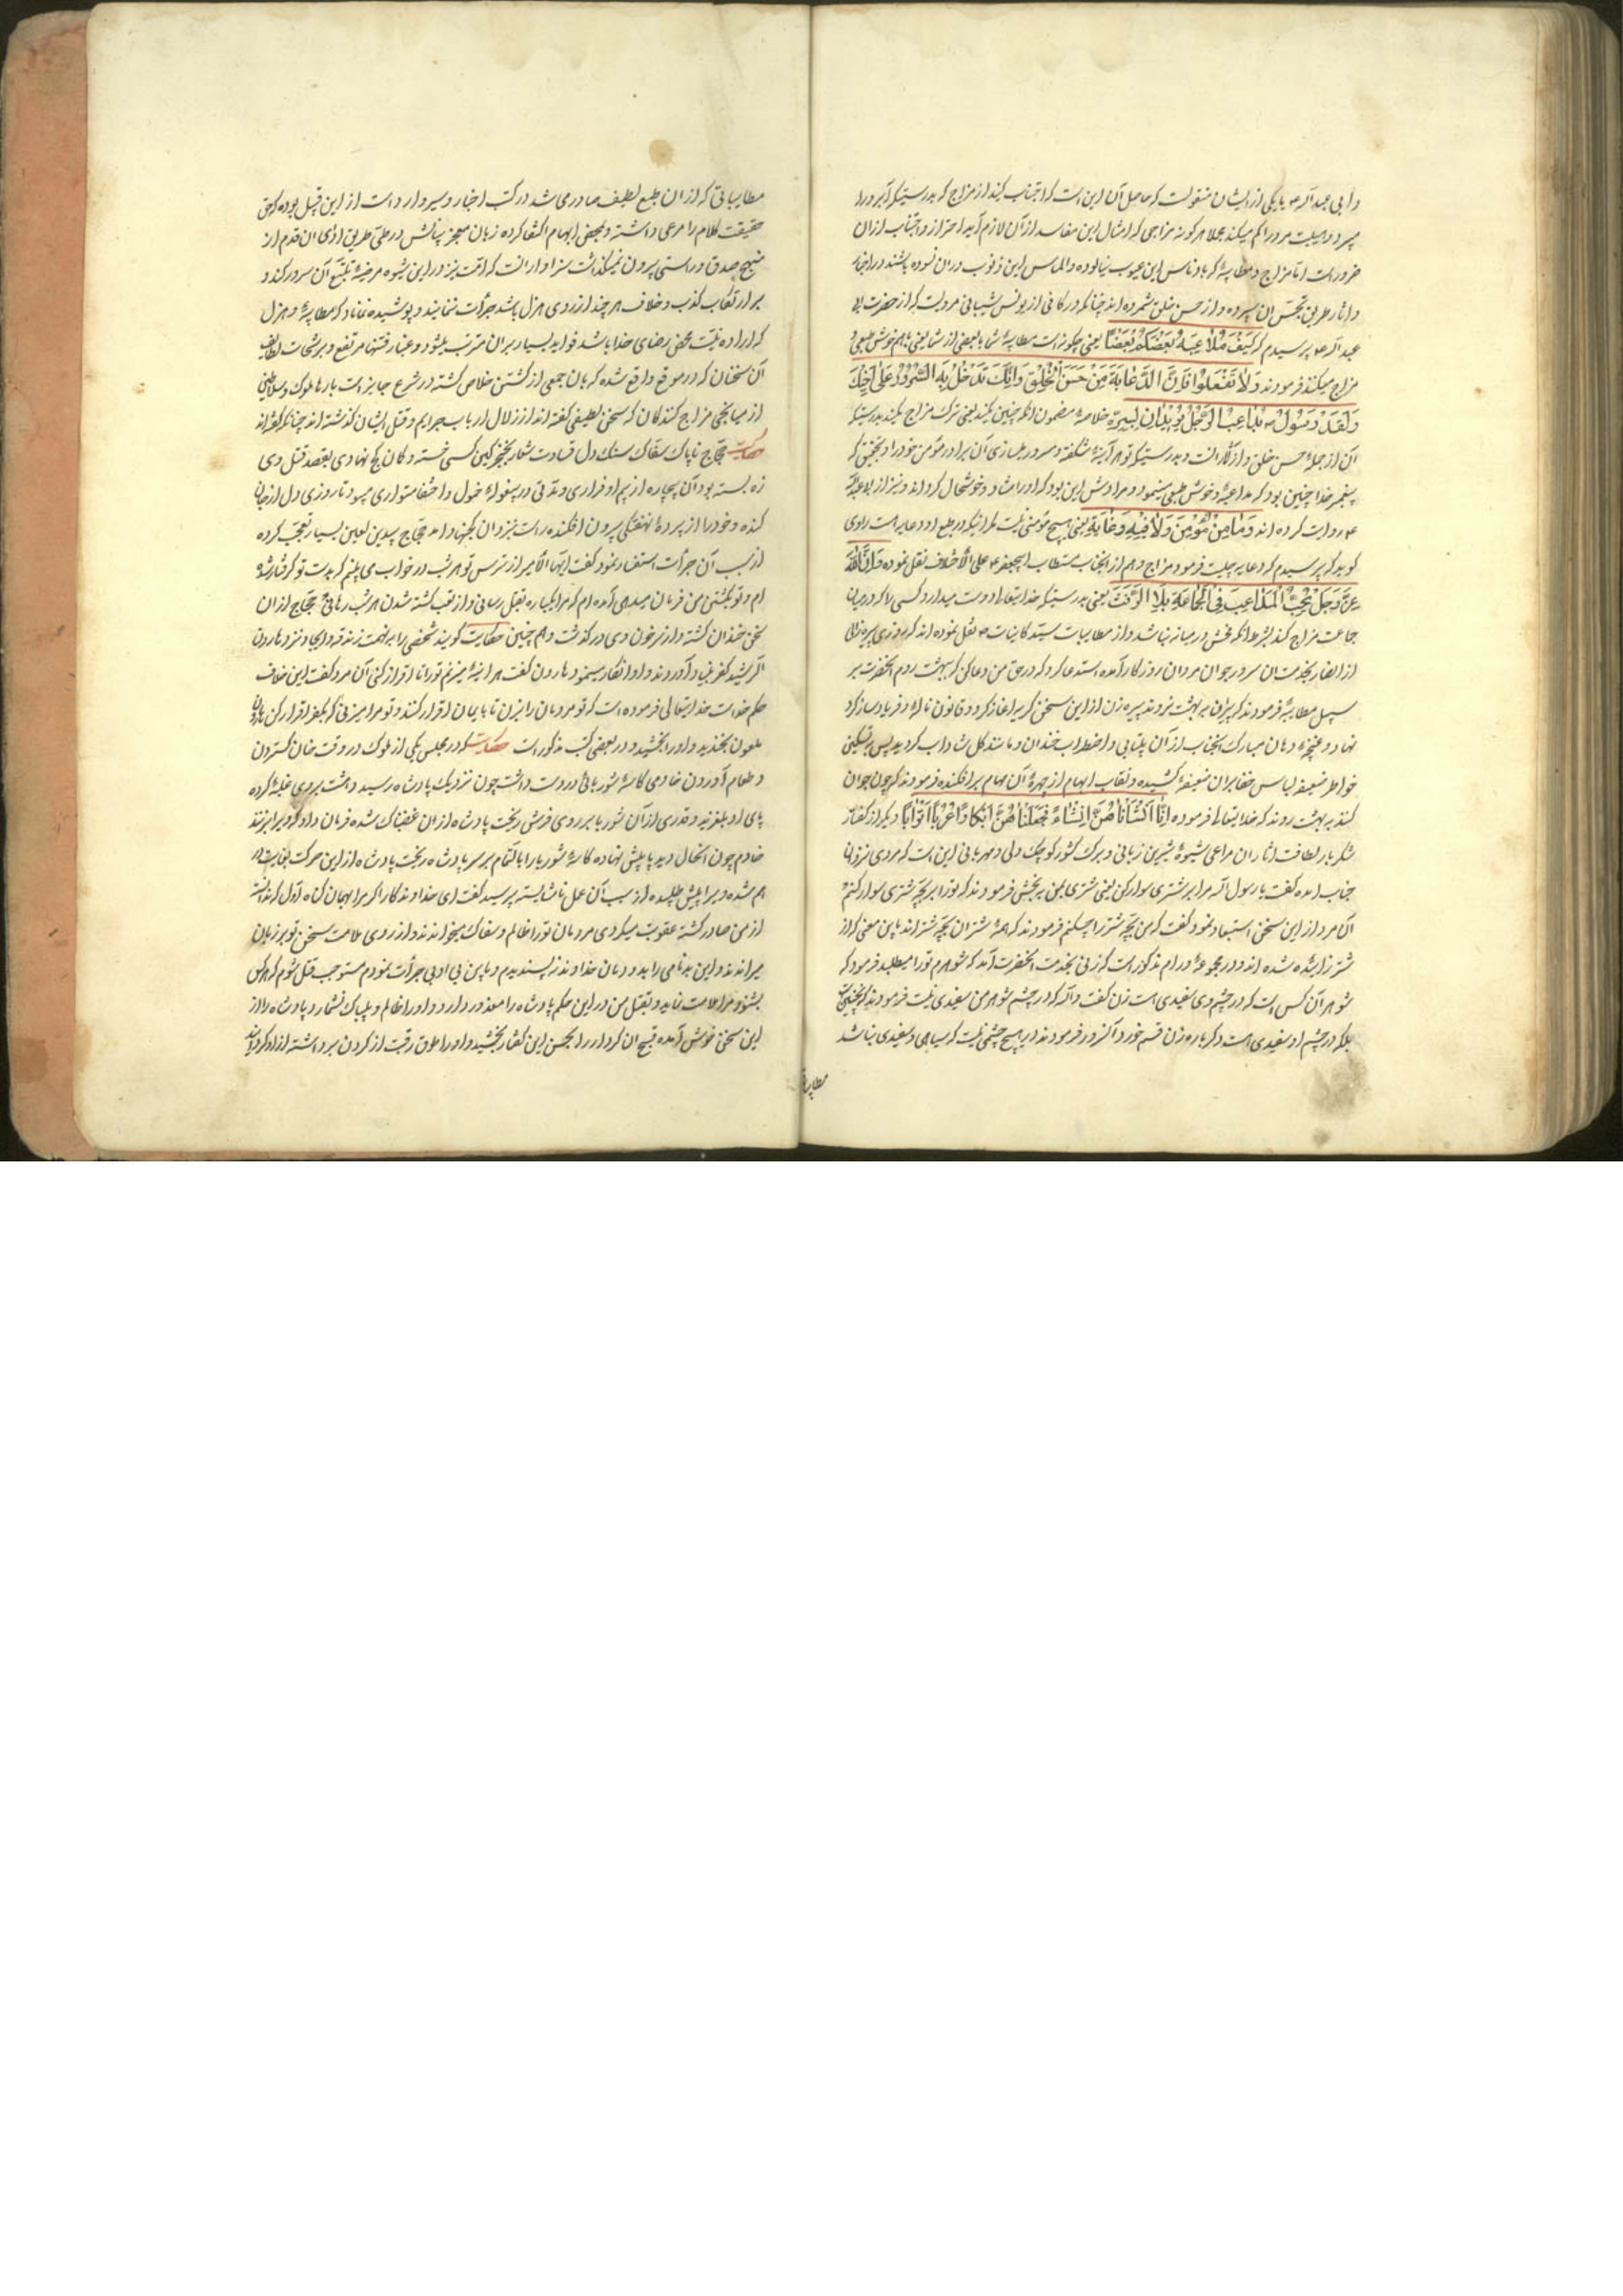 و ابی عبد الله ع با یکی از ایشان منقولست که حاصل آن این است که اجتناب کنید از مزاج که بدرستیکه آبرو را
میبرد و هیبت مرد را کم میکند مجملا هر کونه مزاجی که امثال این مفاسد از آن لازم آید احتراز و اجتناب از ان
ضرور است اما مزاج و مطایبهٔ که بادناس این عیوب نیالوده والماس این ذنوب در ان نسوده باشند در اخبار
و اثار طریق تحسین ان سپرده و از حسن خلق شمرده اند چنانکه در کافی از یونس شیبانی مرویست که از حضرت ابی
عبد الله ع پرسیدم که کَیْفَ مُلٰاعَبَةُ بَعْضِکُمْ بَعْضًا یعنی چکونه است مطایبهٔ شما با بعضی از شما یعنی با هم خوش طبعی و
مزاج میکنند فرمودند وَلٰا تَفْعَلُوا فَاِنَّ الدُّعٰابَةَ مِنْ حُسْنِ الْخُلْقِ وَاِنَّکَ تَدْخُلُ بِهِ السُّرُوْرَ عَلٰی اَخِیْکَ
وَلَقَدْ رَسُوْلُ ص یُلٰاعِبُ الرَّجُلَ یُرِیْدُ اَنْ لِیَسُرَّهُ خلاصهٔ مضمون انکه چنین نکنید یعنی ترک مزاج نکنید بدرستیکه
آن از جملهٔ حسن خلق و از آثار انست و بدرستیکه تو هر آینهٔ شکفته و مسرور میسازی آن برادر مؤمن خود را و بتحقیق که
پیغمبر خدا چنین بود که مداعبهٔ و خوش طبعی مینمود و مرادش این بود که او را شاد و خوشحال کرداند و نیز از ابو عبد الله
ع روایت کرده اند وَمٰا مِنْ مُؤْمِنٍ وَلٰا فِیْهِ دُعٰابَةٌ یعنی هیچ مؤمنی نیست مکر اینکه در طبع او دعابه است راوی
کوید که پرسیدم که دعابه چیست فرمود مزاج و هم از انجناب مستطاب ابیجعفر ع علی الاختلاف نقل نموده فَاِنَّ اللهَ
عَزَّ وَجَلَّ یُحِبُّ الْمُدٰاعِبَ فِی الْجَمٰاعَةِ بِلٰا الرَّفَثَ یعنی بدرستیکه خدایتعالی دوست میدارد کسی را که در میان
جماعت مزاج کند بشرط انکه فحش در میانه نباشد و از مطایبات سید کاینات ص نقل نموده اند که روزی پیرهٔ زالی
از انصار بخدمت ان سرور جوان مردان روزکار آمده استدعا کرد که در حق من دعا کن که ببهشت روم انحضرت بر
سبیل مطایبهٔ فرمودند که پیرزنان به بهشت نروند پیره زن از این سخن کریه اغاز کرد و قانون ناله و فریاد ساز کرد
نهاد و غنچهٔ دهان مبارک انجناب از آن بیتابی و اضطراب خندان و مانند کل شاداب کردید پس بر تسکین
خواطر ضعیفه لباس خفا بران ضعیفهٔ کشیده و نقاب ابهام از چهرهٔ آن مهام برافکنده فرمودند که چون جوان
کنند به بهشت روند که خدایتعالی فرموده اِنّٰا اَنْشَأْنٰاهُنَّ اِنْشٰاءً فَجَعَلْنٰاهُنَّ اَبْکٰارًا عُرُبًا اَتْرٰابًا دیکر از کفتار
شکر بار لطافت اثار ان مراعی شیوهٔ شیرین زبانی و برک کشور کوچک دلی و مهربانی این است که مردی نزد انـ
جناب امده کفت یا رسول الله مرا بر شتری سوار کن یعنی شتری بمن ببخش فرمودند که تو را بر بچهٔ شتری سوار کنم
آن مرد از این سخن استبعاد نمود کفت که من بچه شتر را چکنم فرمودند که همهٔ شتران بچه شتر اند باین معنی که از
شتر زائیده شده اند و در مجموعهٔ ورام مذکور است که زنی بخدمت انحضرت آمد که شوهرم تو را میطلبد فرمود که
شوهر آن کس است که در چشم وی سفیدی است زن کفت والله که در چشم شوهر من سفیدی نیست فرمودند که نچنین است
بلکه در چشم او سفیدی است دکر باره زن قسم خورد آنسرور فرمودند در هیچ چشمی نیست که سیاهی و سفیدی نباشد
مطایباتی
مطایباتی که از ان طبع لطیف صادر می شد در کتب اخبار و سیر وارد است از این قبیل بوده که حق
حقیقت کلام را مرعی داشته و بمحض ابهام اکتفا کرده زبان معجز بیانش در طی طریق ادای ان قدم از
منهج صدق و راستی بیرون نمیکذاشت سزاوار انست که امت نیز در این شیوه مرضیهٔ تتبع آن سرور کند و
بر ارتکاب کذب و خلاف هر چند از روی هزل باشد جرأت ننمایند و پوشیده نماناد که مطایبهٔ و هزل
که اراده نیت محض رضای خدا باشد فواید بسیار بران مترتب میشود و غبار فتنها مرتفع و برشحات لطایف
آن سخنان که در موقع واقع شده که بان جمعی از کشتن خلاص کشته در شرع جایز است بارها ملوک و سلاطین
از میانجی مزاج کنندکان که سخن لطیفی کفته اند از زلال ارباب جرایم و قتل ایشان کذشته اند چنانکه کفته اند
حکایت حجاج ناپاک سفاک سنک دل قساوت شعار بخنجر کین کسی خسته و کمان کج نهادی بقصد قتل وی
زه بسته بود آن بیچاره از بیم او فراری و مدتی در بیغولهٔ خمول و اختفا متواری میبود تا روزی دل از جان
کنده و خود را از پردهٔ نهفتکی بیرون افکنده راست نزد ان بیکنهاد امد حجاج بیدین لعین بسیار تعجب کرده
از سبب آن جرأت استفسار نمود کفت ایها الامیر از ترس تو هر شب در خواب می بینم که بدست تو کرفتار شده
ام و تو بکشتن من فرمان میدهی آمده ام که مرا یکباره بقتل رسانی و از تعب کشته شدن هر شب رهانی حجاج از ان
سخن خندان کشته و از سر خون وی در کذشت و هم چنین حکایت کویند شخصی را بر تهمت زندقه و الحاد نزد هارون
الرشید کفر بنیاد آوردند و او انکار مینمود هارون کفت هر اینه میزنم تو را تا اقرار کنی آن مرد کفت این خلاف
حکم خداست خدایتعالی فرموده است که تو مردمان را بزن تا بایمان اقرار کنند و تو مرا میزنی که بکفر اقرار کن هارون
ملعون بخندید و او را بخشید و در بعضی کتب مذکور است حکایت که در مجلس یکی از ملوک در وقت خان کستردن
و طعام آوردن خادمی کاسهٔ شوربائی در دست داشت چون نزدیک پادشاه رسید دهشت بر وی غلبهٔ کرده
پای او بلغزید و قدری از آن شوربا بر روی فرش ریخت پادشاه از ان غضبناک شده فرمان داد که ویرا بزنند
خادم چون انحال دید پا پیش نهاده کاسهٔ شوربا را بالتمام بر سر پادشاه ریخت پادشاه از این حرکت بغایت در
هم شده ویرا پیش طلبیده از سبب آن عمل ناشایسته پرسید کفت ای خداوندکار اکر مرا بهمان کناه اول که ندانسته
از من صادر کشته عقوبت میکردی مردمان تو را ظالم و سفاک میخواندند و از روی ملامت سخن تو بر زبان
میراندند و این بدنامی را بد و دمان خداوند نه پسندیدم و باین بی ادبی جرأت نمودم مستوجب قتل شوم که هر کس
بشنود مرا ملامت نماید و بقتل من در این حکم پادشاه را معذور دارد و او را ظالم و بیباک نشمارد پادشاه را از
این سخن خوش آمده قبیح ان کردار را بحسن این کفتار بخشید و او را طوق رقبت از کردن برداشته ازاد کردانید